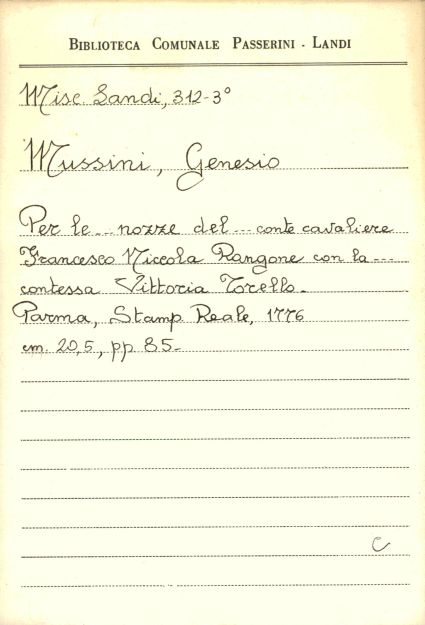 BIBLIOTECA COMUNALE PASSERINI - LANDI
Misc Landi, 312-3°
Mussini, Genesio
Per le ... nozze del ... conte cavaliere
Francesco Niccola Rangone con la ...
contessa Vittoria Torello.
Parma, Stamp Reale, 1776
cm. 20,5, pp 85-
C